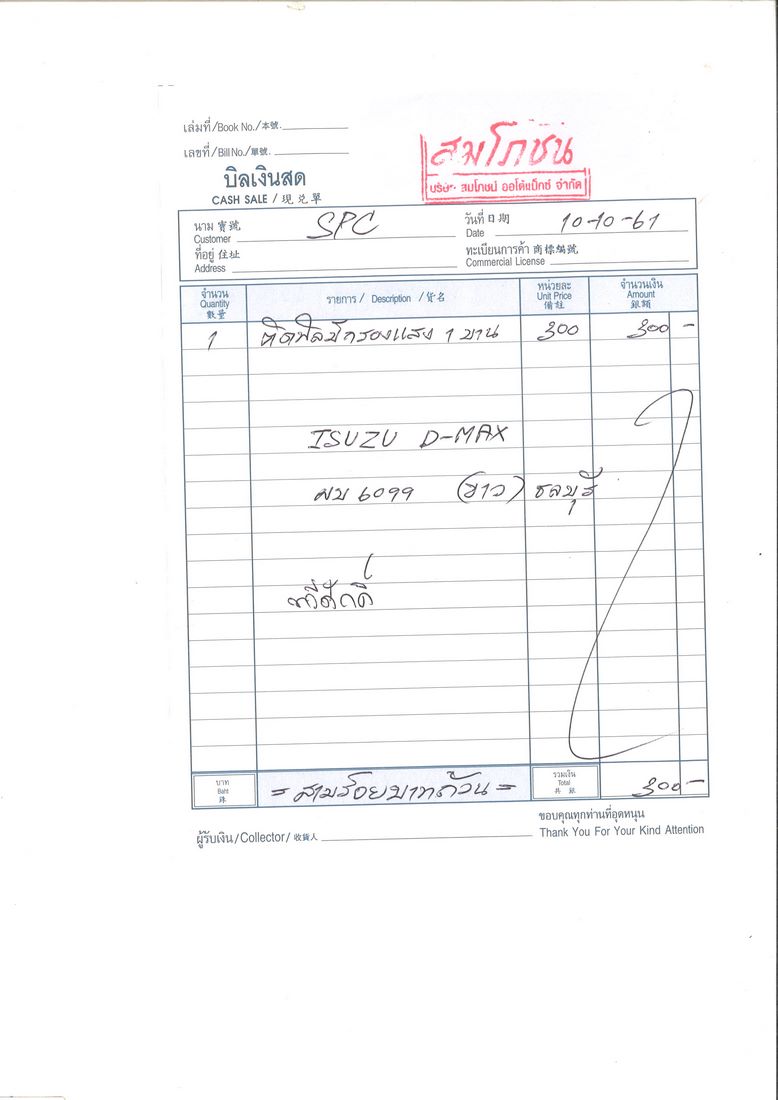 เล่มที่/Book No./本號.
เลขที่/Bill No./單號.
บิลเงินสด
CASH SALE / 現兑單
สมโภชน์
บริษัท สมโภชน์ ออโต้แม็กซ์ จำกัด
นาม 寶號 SPC วันที่ 日期 10-10-61
Customer Date
ที่อยู่ 住址 ทะเบียนการค้า 商標編號
Address Commercial License
จำนวน รายการ / Description / 貨名 หน่วยละ จำนวนเงิน
Quantity Unit Price Amount
數量 備註 銀額
1 ติดฟิล์มกรองแสง 1 บาน 300 300 -
ISUZU D-MAX
6099 (ขาว) ชลบุรี
ทวีศักดิ์
บาท = สามร้อยบาทถ้วน = รวมเงิน 300 -
Baht Total
銖 共銀
ขอบคุณทุกท่านที่อุดหนุน
ผู้รับเงิน/Collector/收貨人 Thank You For Your Kind Attention